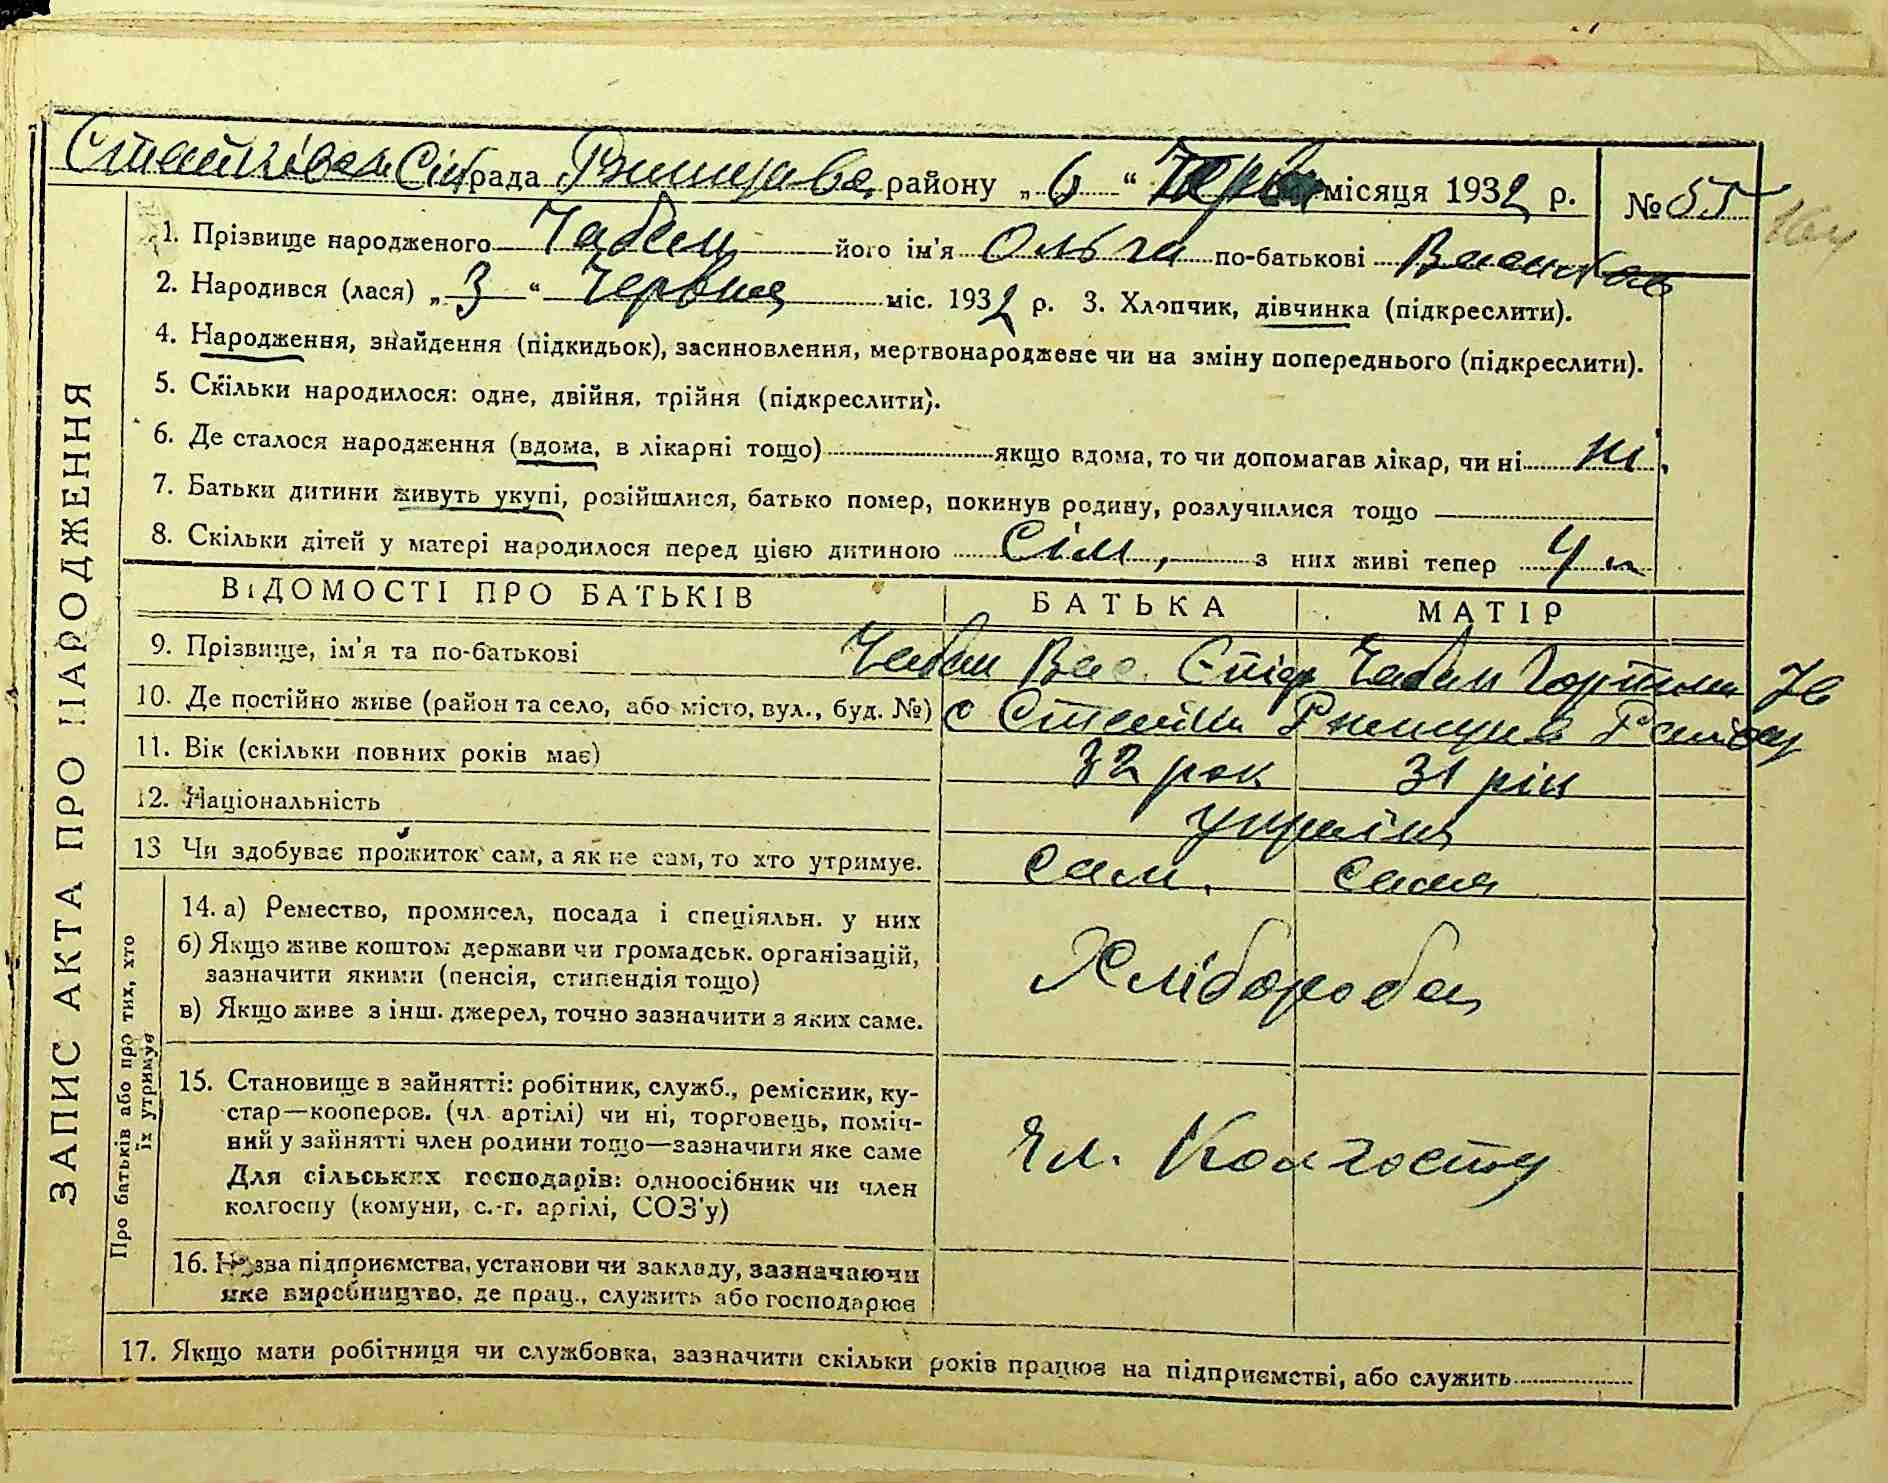 Стайківська Сільрада Ржищівс району „6“ Черв місяця 1932 р. № 55
1. Прізвище народженого Чабан його ім'я Ольга по-батькові
2. Народився (лася) „3“ Червня міс. 1932 р. 3. Хлопчик, дівчинка (підкреслити).
4. Народження, знайдення (підкидьок), засиновлення, мертвонароджене чи на зміну попереднього (підкреслити).
5. Скільки народилося: одне, двійня, трійня (підкреслити).
6. Де сталося народження (вдома, в лікарні тощо) якщо вдома, то чи допомагав лікар, чи ні ні.
7. Батьки дитини живуть укупі, розійшлися, батько помер, покинув родину, розлучилися тощо
8. Скільки дітей у матері народилося перед цією дитиною Сім, з них живі тепер 4
ВІДОМОСТІ ПРО БАТЬКІВ БАТЬКА МАТІР
9. Прізвище, ім'я та по-батькові Чабан Вас. Спір Чабан Горпина Ів
10. Де постійно живе (район та село, або місто, вул., буд. №) с Стайки Ржищів Району
11. Вік (скільки повних років має) 32 рок 31 рік
12. Національність україн
13 Чи здобуває прожиток сам, а як не сам, то хто утримує. сам. сама
14. а) Ремество, промисел, посада і спеціяльн. у них
б) Якщо живе коштом держави чи громадськ. організацій,
зазначити якими (пенсія, стипендія тощо)
в) Якщо живе з інш. джерел, точно зазначити з яких саме.
Хлібороби
15. Становище в зайнятті: робітник, служб., ремісник, ку-
стар—кооперов. (чл. артілі) чи ні, торговець, поміч-
ний у зайнятті член родини тощо—зазначити яке саме
Для сільських господарів: одноосібник чи член
колгоспу (комуни, с.-г. артілі, СОЗ'у)
Чл. Колгоспу
16. Назва підприємства, установи чи закладу, зазначаючи
яке виробництво, де прац., служить або господарює
17. Якщо мати робітниця чи службовка, зазначити скільки років працює на підприємстві, або служить
ЗАПИС АКТА ПРО НАРОДЖЕННЯ
Про батьків або про тих, хто
їх утримує